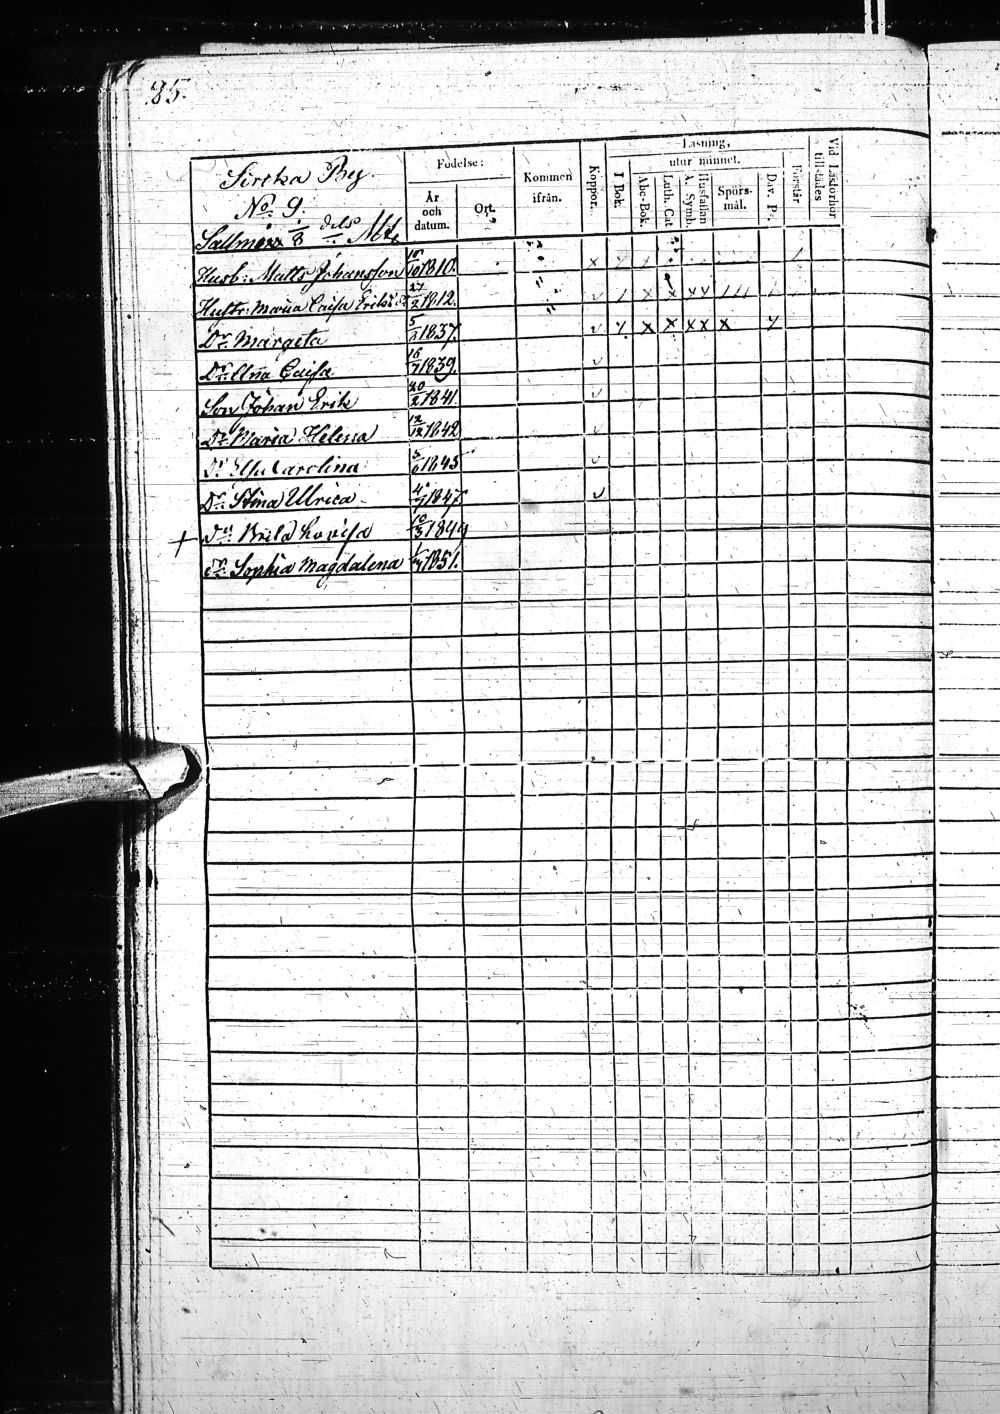 85.
Sircka By.
No. 9.
Sallmans 1/8 dels Mtl
Födelse:
År och datum.
Ort.
Kommen ifrån.
Koppor.
Läsning,
I Bok.
utur minnet.
Abc-Bok.
Luth. Cat
A. Symb. Hustaflan
Spörs-mål.
Dav. Ps.
Förstår
Vid Läsförhör till-städes
Husb: Matts Johansson 10/10 1810. x
Hustr: Maria Caisa Eriksd: 27/2 1812. v / x x xx /// / /
Dr. Margeta 5/ 1837. v x x xx x
Dr. Anna Caisa 16/7 1839. v
Son Johan Erik 20/2 1841. v
Dr. Maria Helena 12/12 1842 v
Dr. Carolina 5/6 1845 v
Dr. Stina Ulrica 4/7 1847. v
+ Dr. Brita Lovisa 10/3 1849
Dr. Sophia Magdalena 1851.